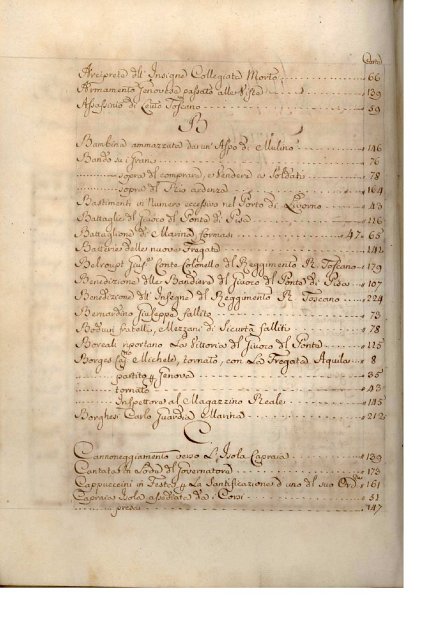 Carte
Arciprete dell' Insigne Collegiata Morto 66
Armamento Genovese passato alle Viste 139
Assassinio di Leuto Toscano 59
B
Bambina ammazzata da un' Aspo di Mulino 146
Bando su i Grani 76
sopra del comprare, e Vendere a Soldati 78
sopra del Rio cadenza 164
Bastimenti in Numero eccessivo nel Porto di Livorno 43
Battaglie del Giuoco del Ponte di Pisa 116
Battaglione di Marina formasi 47. 65
Batterie delle nuove Fregate 142
Conte Colonello del Reggimento R. Toscano 179
Benedizione delle Bandiere del Giuoco del Ponte di Pisa 107
Benedizione dell' Insegne del Reggimento R. Toscano 224
Bernardino Giuseppe fallito 73
fratelli, Mezzani di Sicurtà falliti 78
Boreali riportano La Vittoria del Giuoco del Ponte 125
Borges Michele, tornato, con La Fregata Aquila 8
partito p Genova 35
tornato 43
Inspettore al Magazzino Reale 145
Borghesi Carlo Guardia Marina 212
C
Cannoneggiamento verso L'Isola Capraia 139
Cantata in Lode del Governatore 173
Cappuccini in Festa p La Santificazione d'uno del suo Ord.e 161
Capraia Isola assediata da i Corsi 51
presa 147